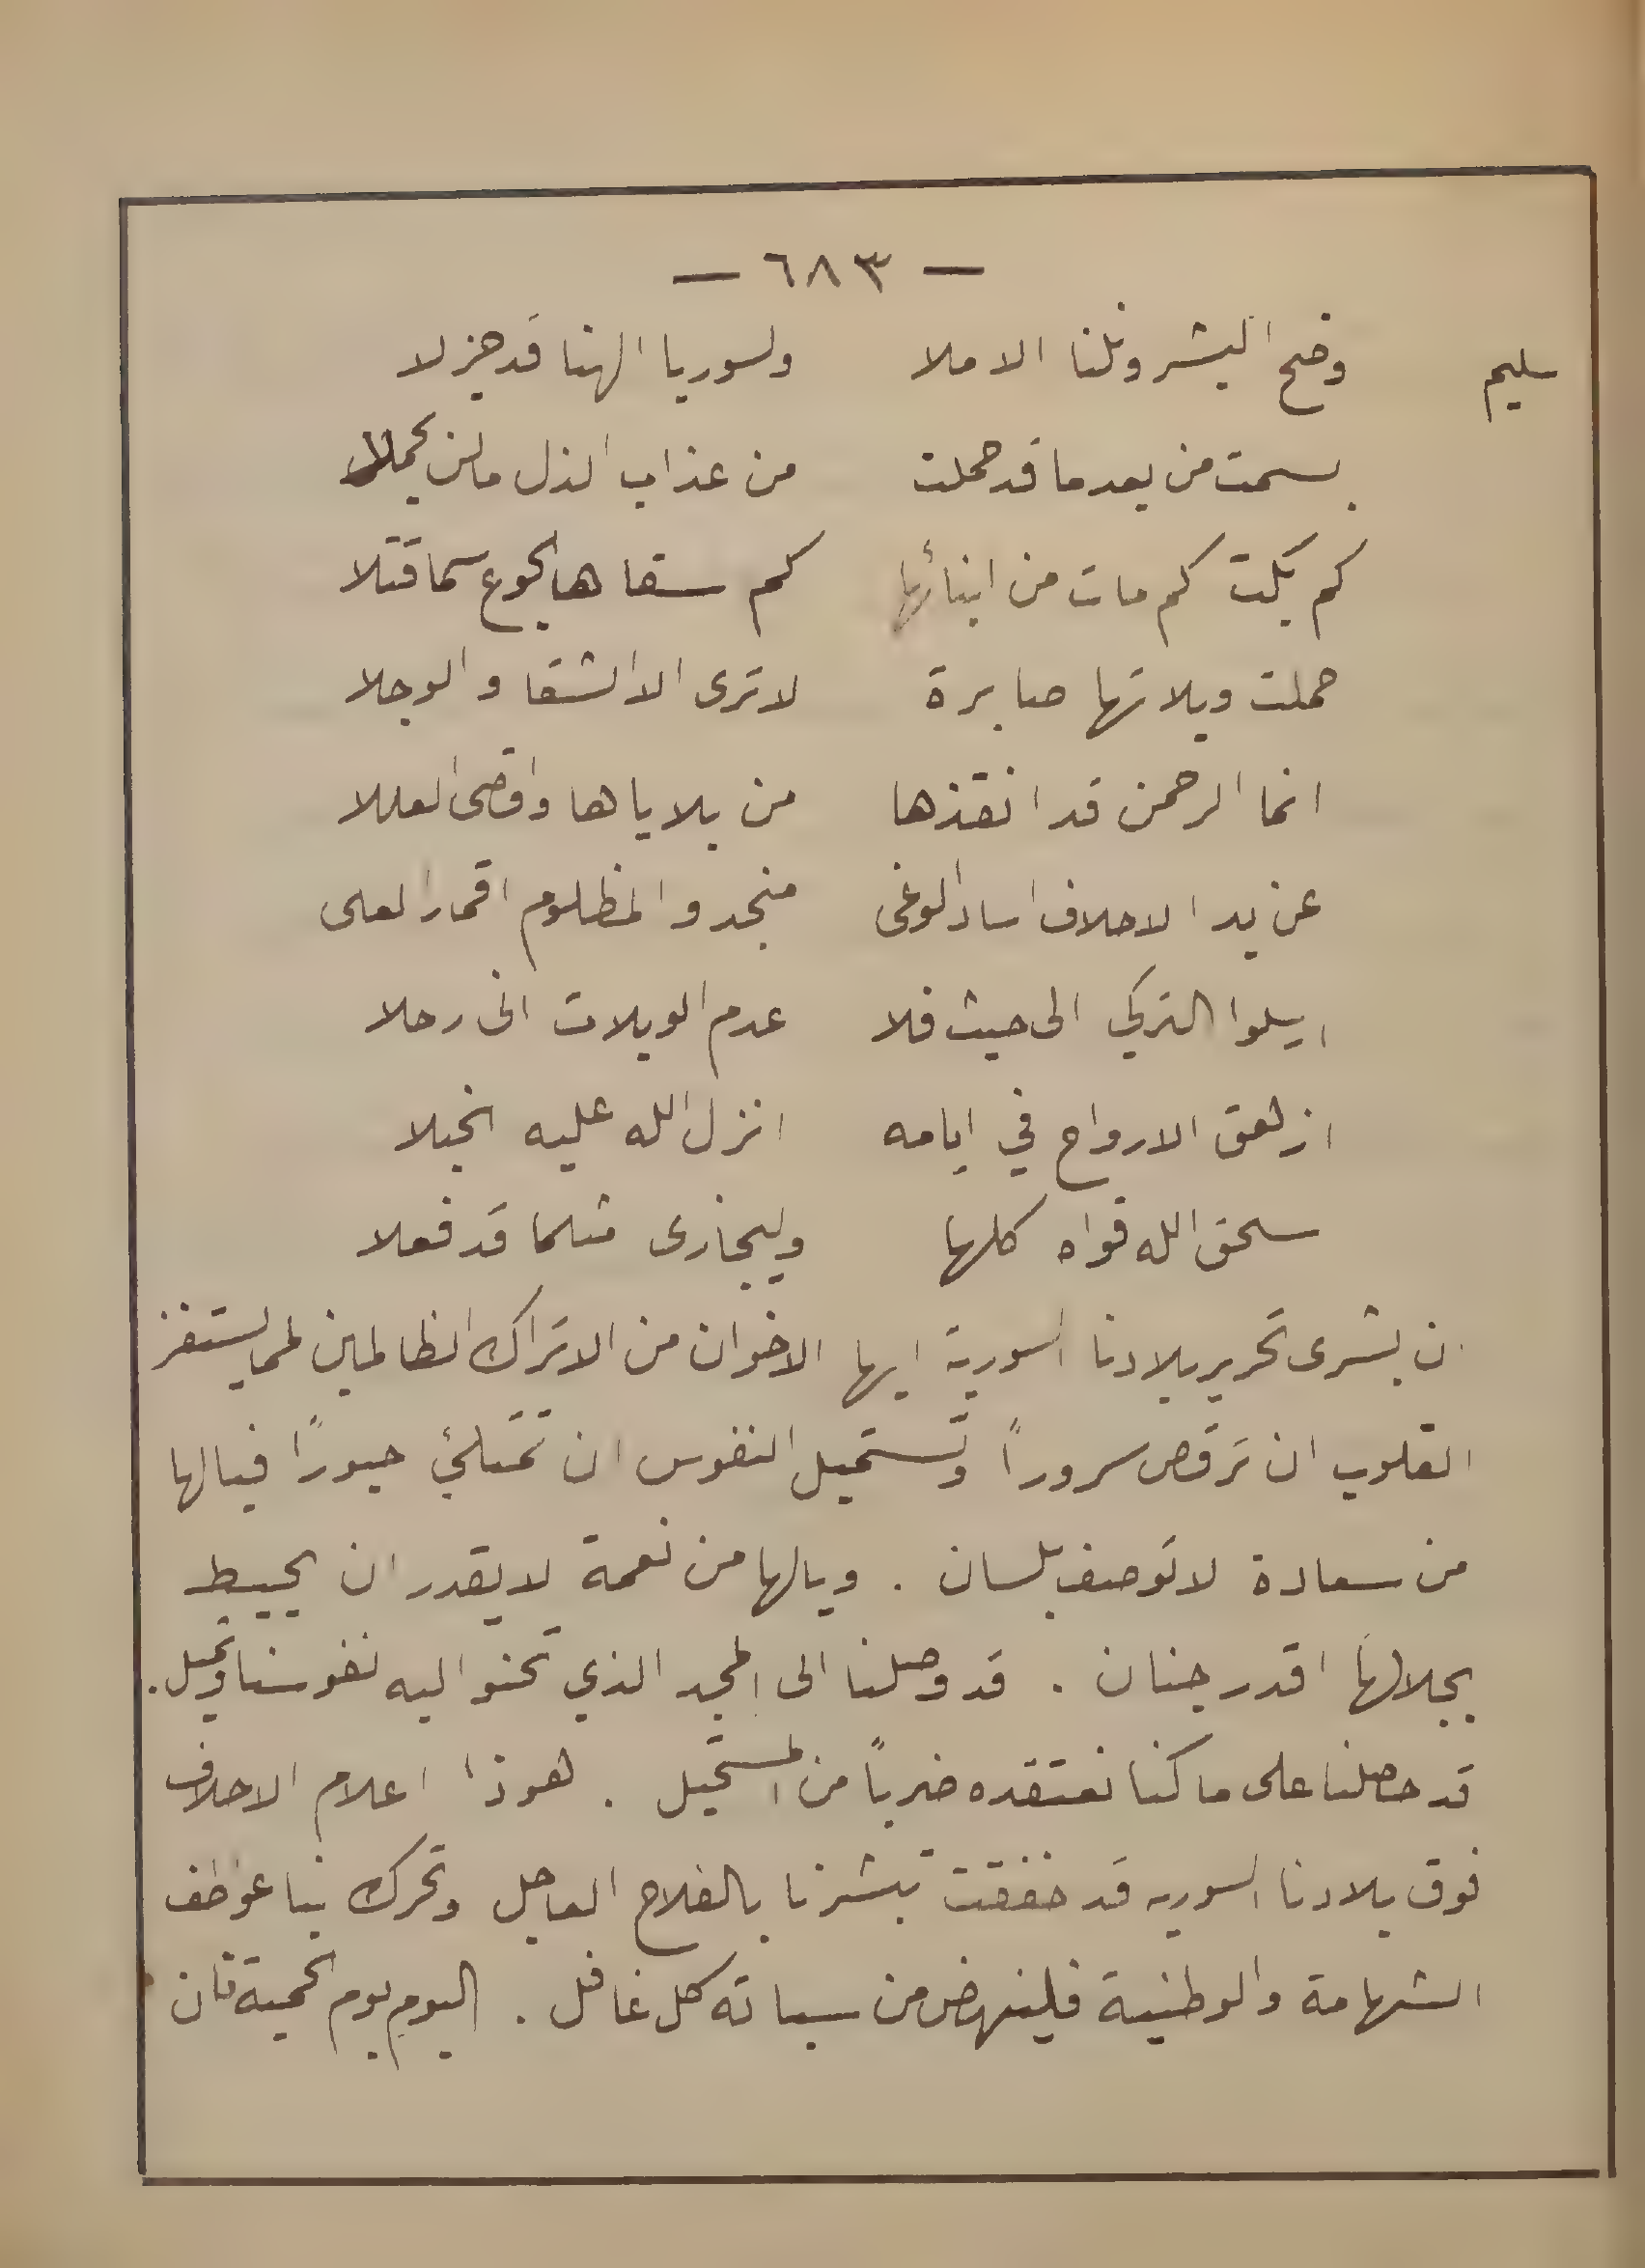 — ٦٨٣ —
سليم وضح البشر ونلنا الاملا ولسوريا الهنا قد جزلا
بسمت من بعد ما قد حملت من عذاب الذل ما لن يحملا
كم بكت كم مات من ابنائها كم سقاها الجوع سما قتلا
حملت ويلاتها صابرة لا ترى الا الشقا والوجلا
انما الرحمن قد انقذها من بلاياها واقصى العللا
عن يد الاحلاف اساد الوغى منجدو المظلوم اقمار العلى
ارسلوا التركي الى حيث فلا عدم الويلات انى رحلا
ازهق الارواح في ايامه انزل الله عليه الخبلا
سحق الله قواه كلها وليجازى مثلما قد فعلا
ان بشرى تحرير بلادنا السورية ايها الاخوان من الاتراك الظالمين لمما يستفز
القلوب ان ترقص سروراً وتستميل النفوس ان تمتلئ حبوراً فيالها
من سعادة لا توصف بلسان . ويالها من نعمة لا يقدر ان يحيط
بجلالها اقدر جنان . قد وصلنا الى المجد الذي تحنو اليه نفوسنا وتميل .
قد حصلنا على ما كنا نعتقده ضرباً من المستحيل . هوذا اعلام الاحلاف
فوق بلادنا السوريه قد خفقت تبشرنا بالفلاح العاجل وتحرك بنا عواطف
الشهامة والوطنية فلينهض من سباته كل غافل . اليوم يوم الحمية فان